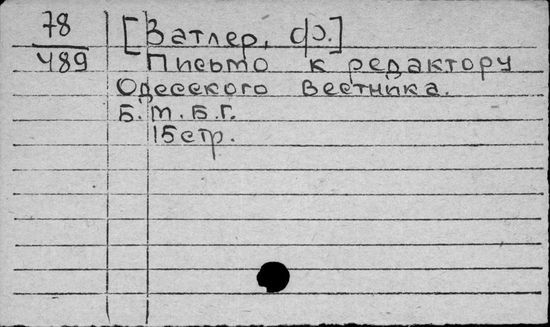 78
489
[Затлер, Ф.]
Письмо к редактору
Одесского Вестника.
Б.м.Б.г.
15 стр.